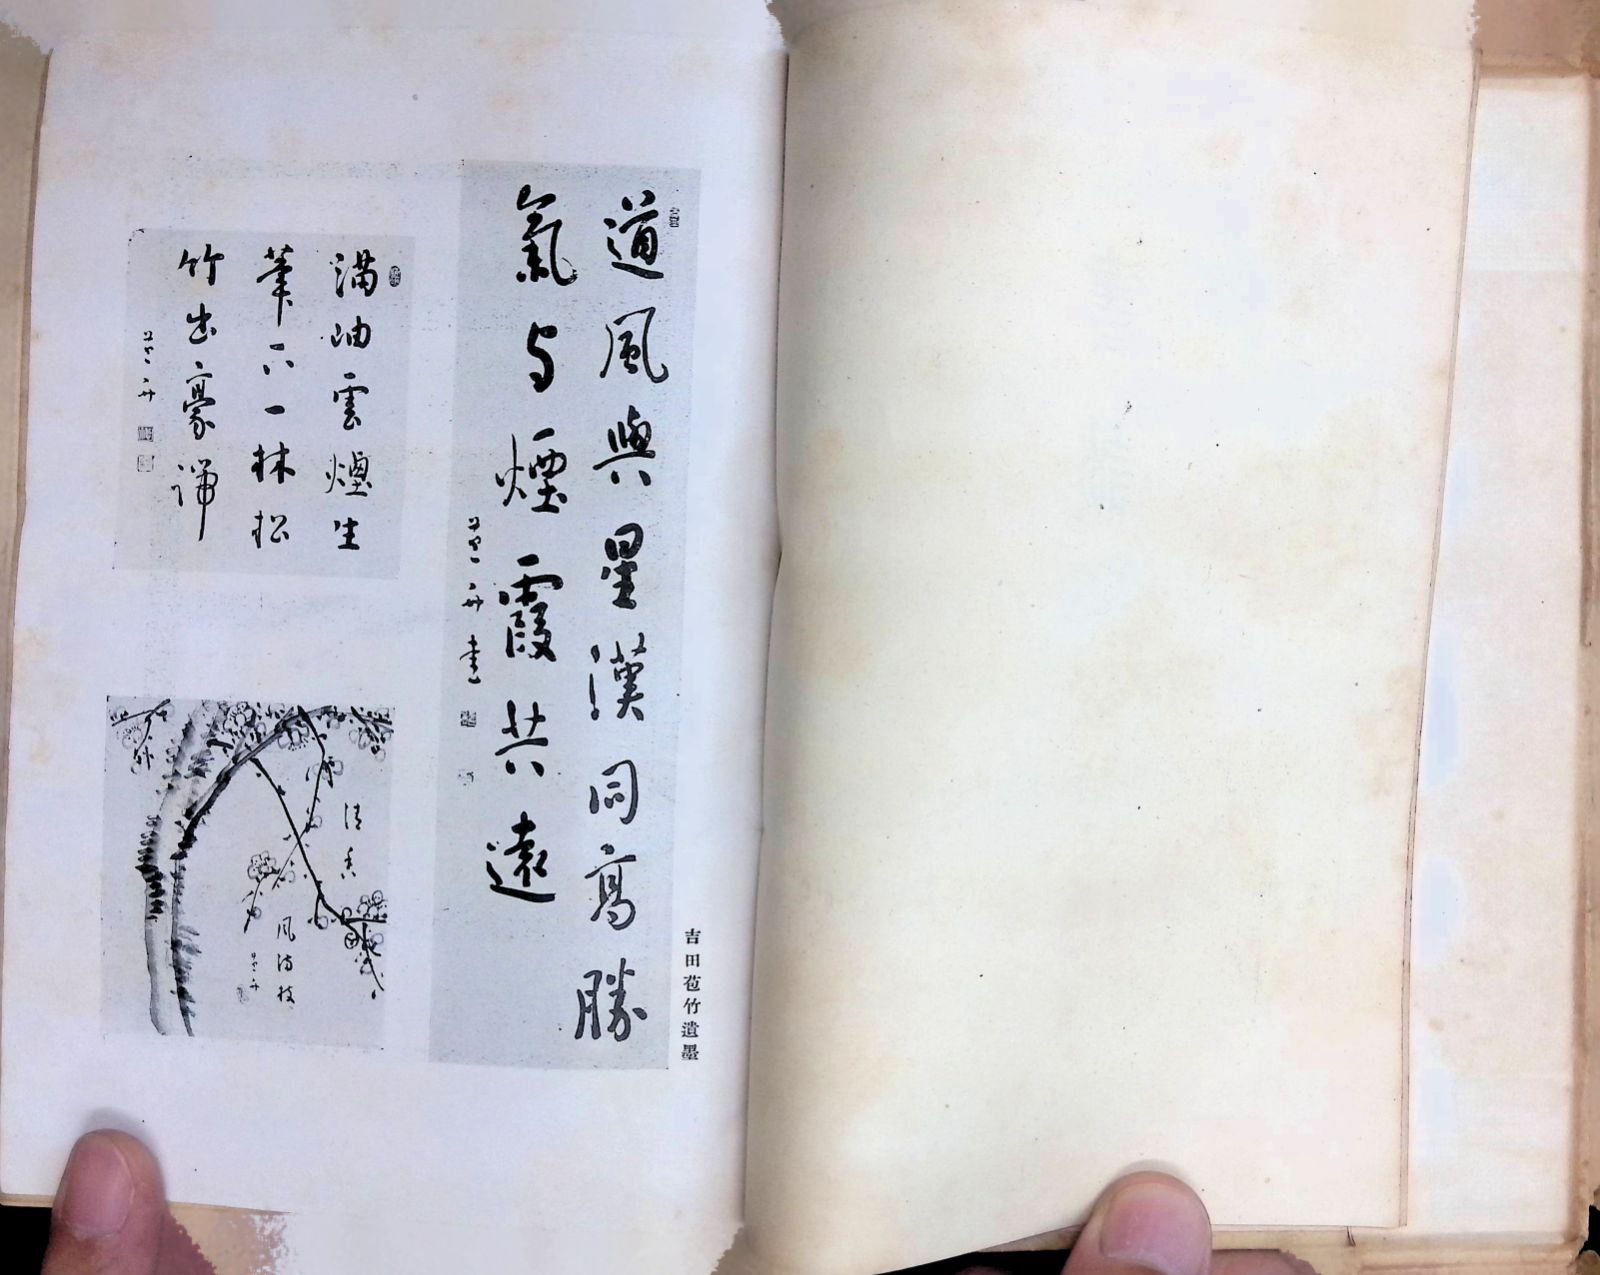 吉田苞竹遺墨
道風與星漢同高勝
氣与煙霞共遠
苞竹書
滿岫雲煙生
筆下一林松
竹出豪端
苞竹
清香
風滿枝
苞竹